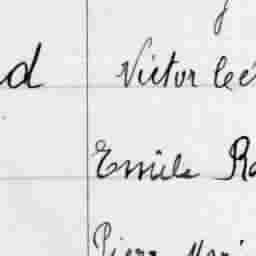 d Victor Cé
Emile Ra
Pierr Mari